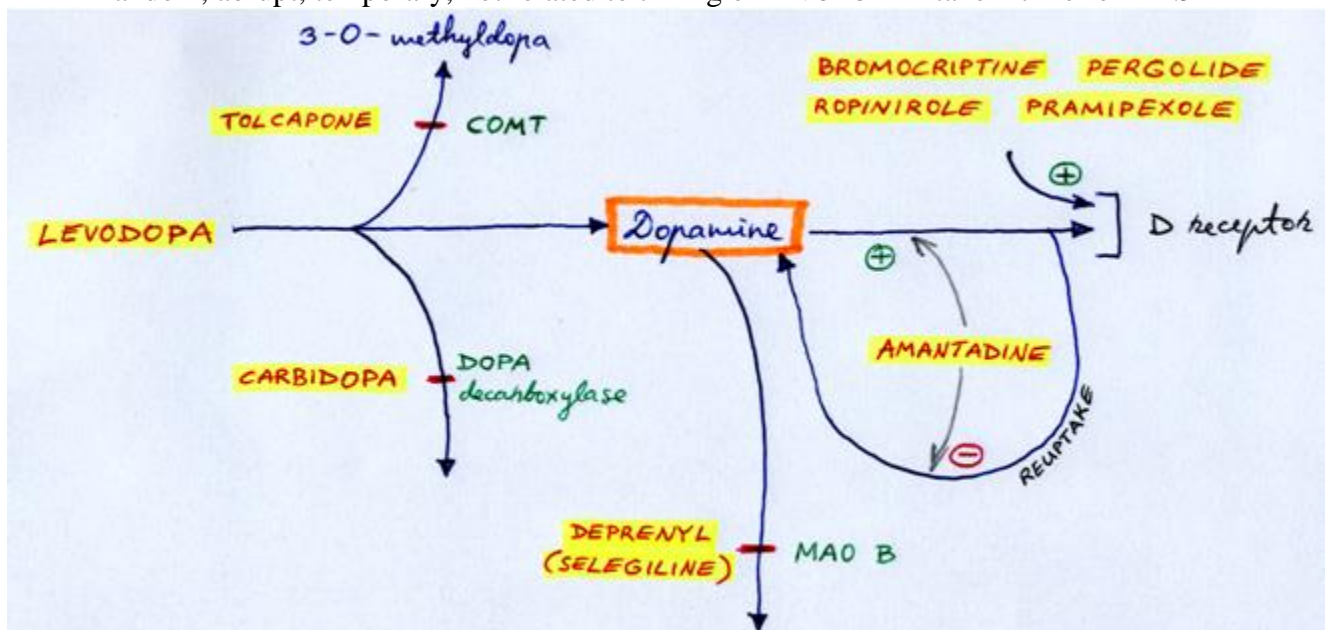 3-O-methyldopa
BROMOCRIPTINE PERGOLIDE
ROPINIROLE PRAMIPEXOLE
TOLCAPONE COMT
+
LEVODOPA
Dopamine
D receptor
+
AMANTADINE
CARBIDOPA
DOPA
decarboxylase
−
REUPTAKE
DEPRENYL
(SELEGILINE)
MAO B